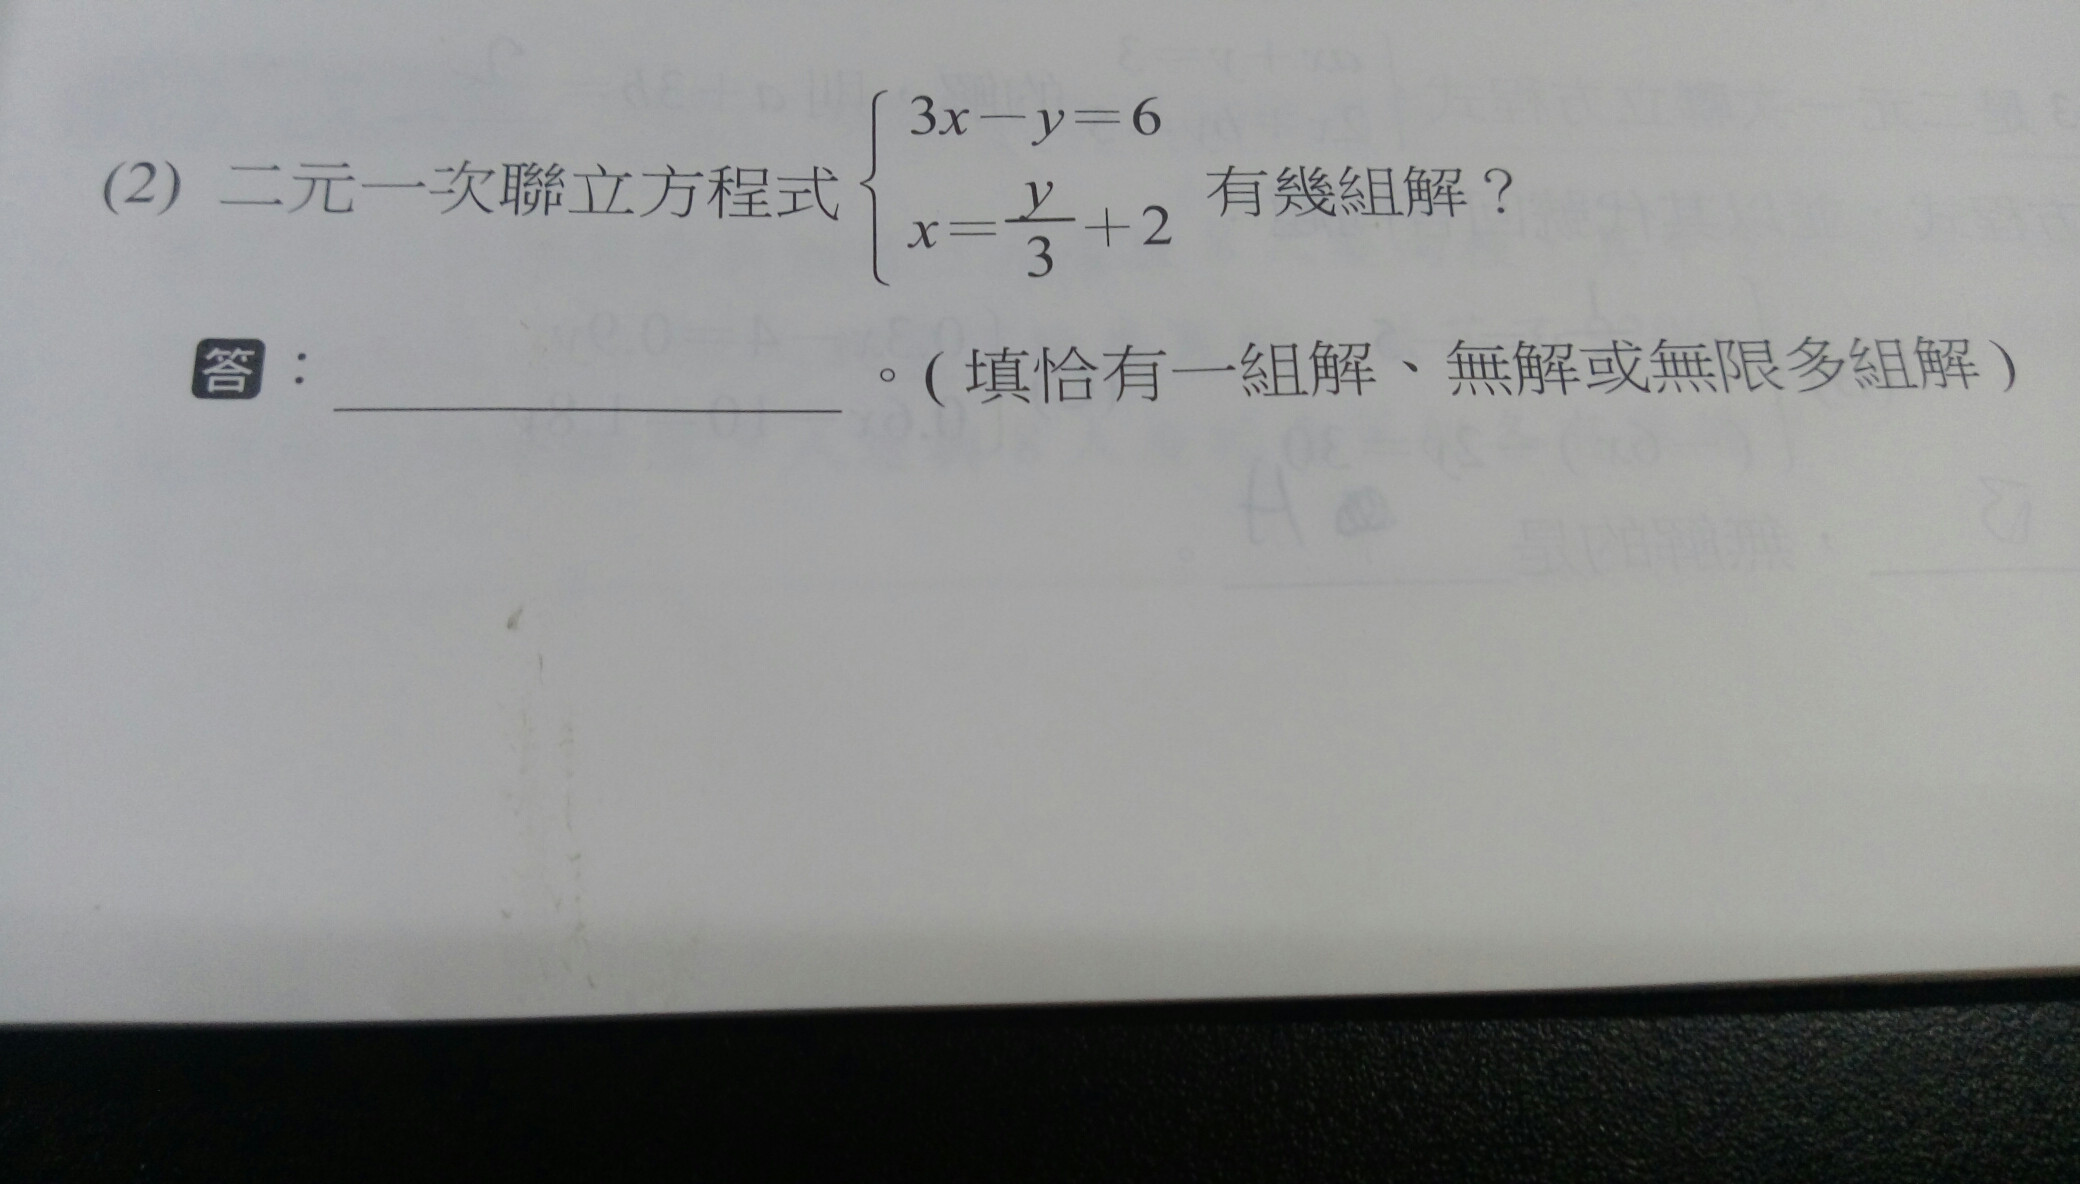 (2) 二元一次聯立方程式 { 3x－y＝6
x＝y/3＋2 有幾組解？
答：＿＿＿＿＿＿＿＿。(填恰有一組解、無解或無限多組解)